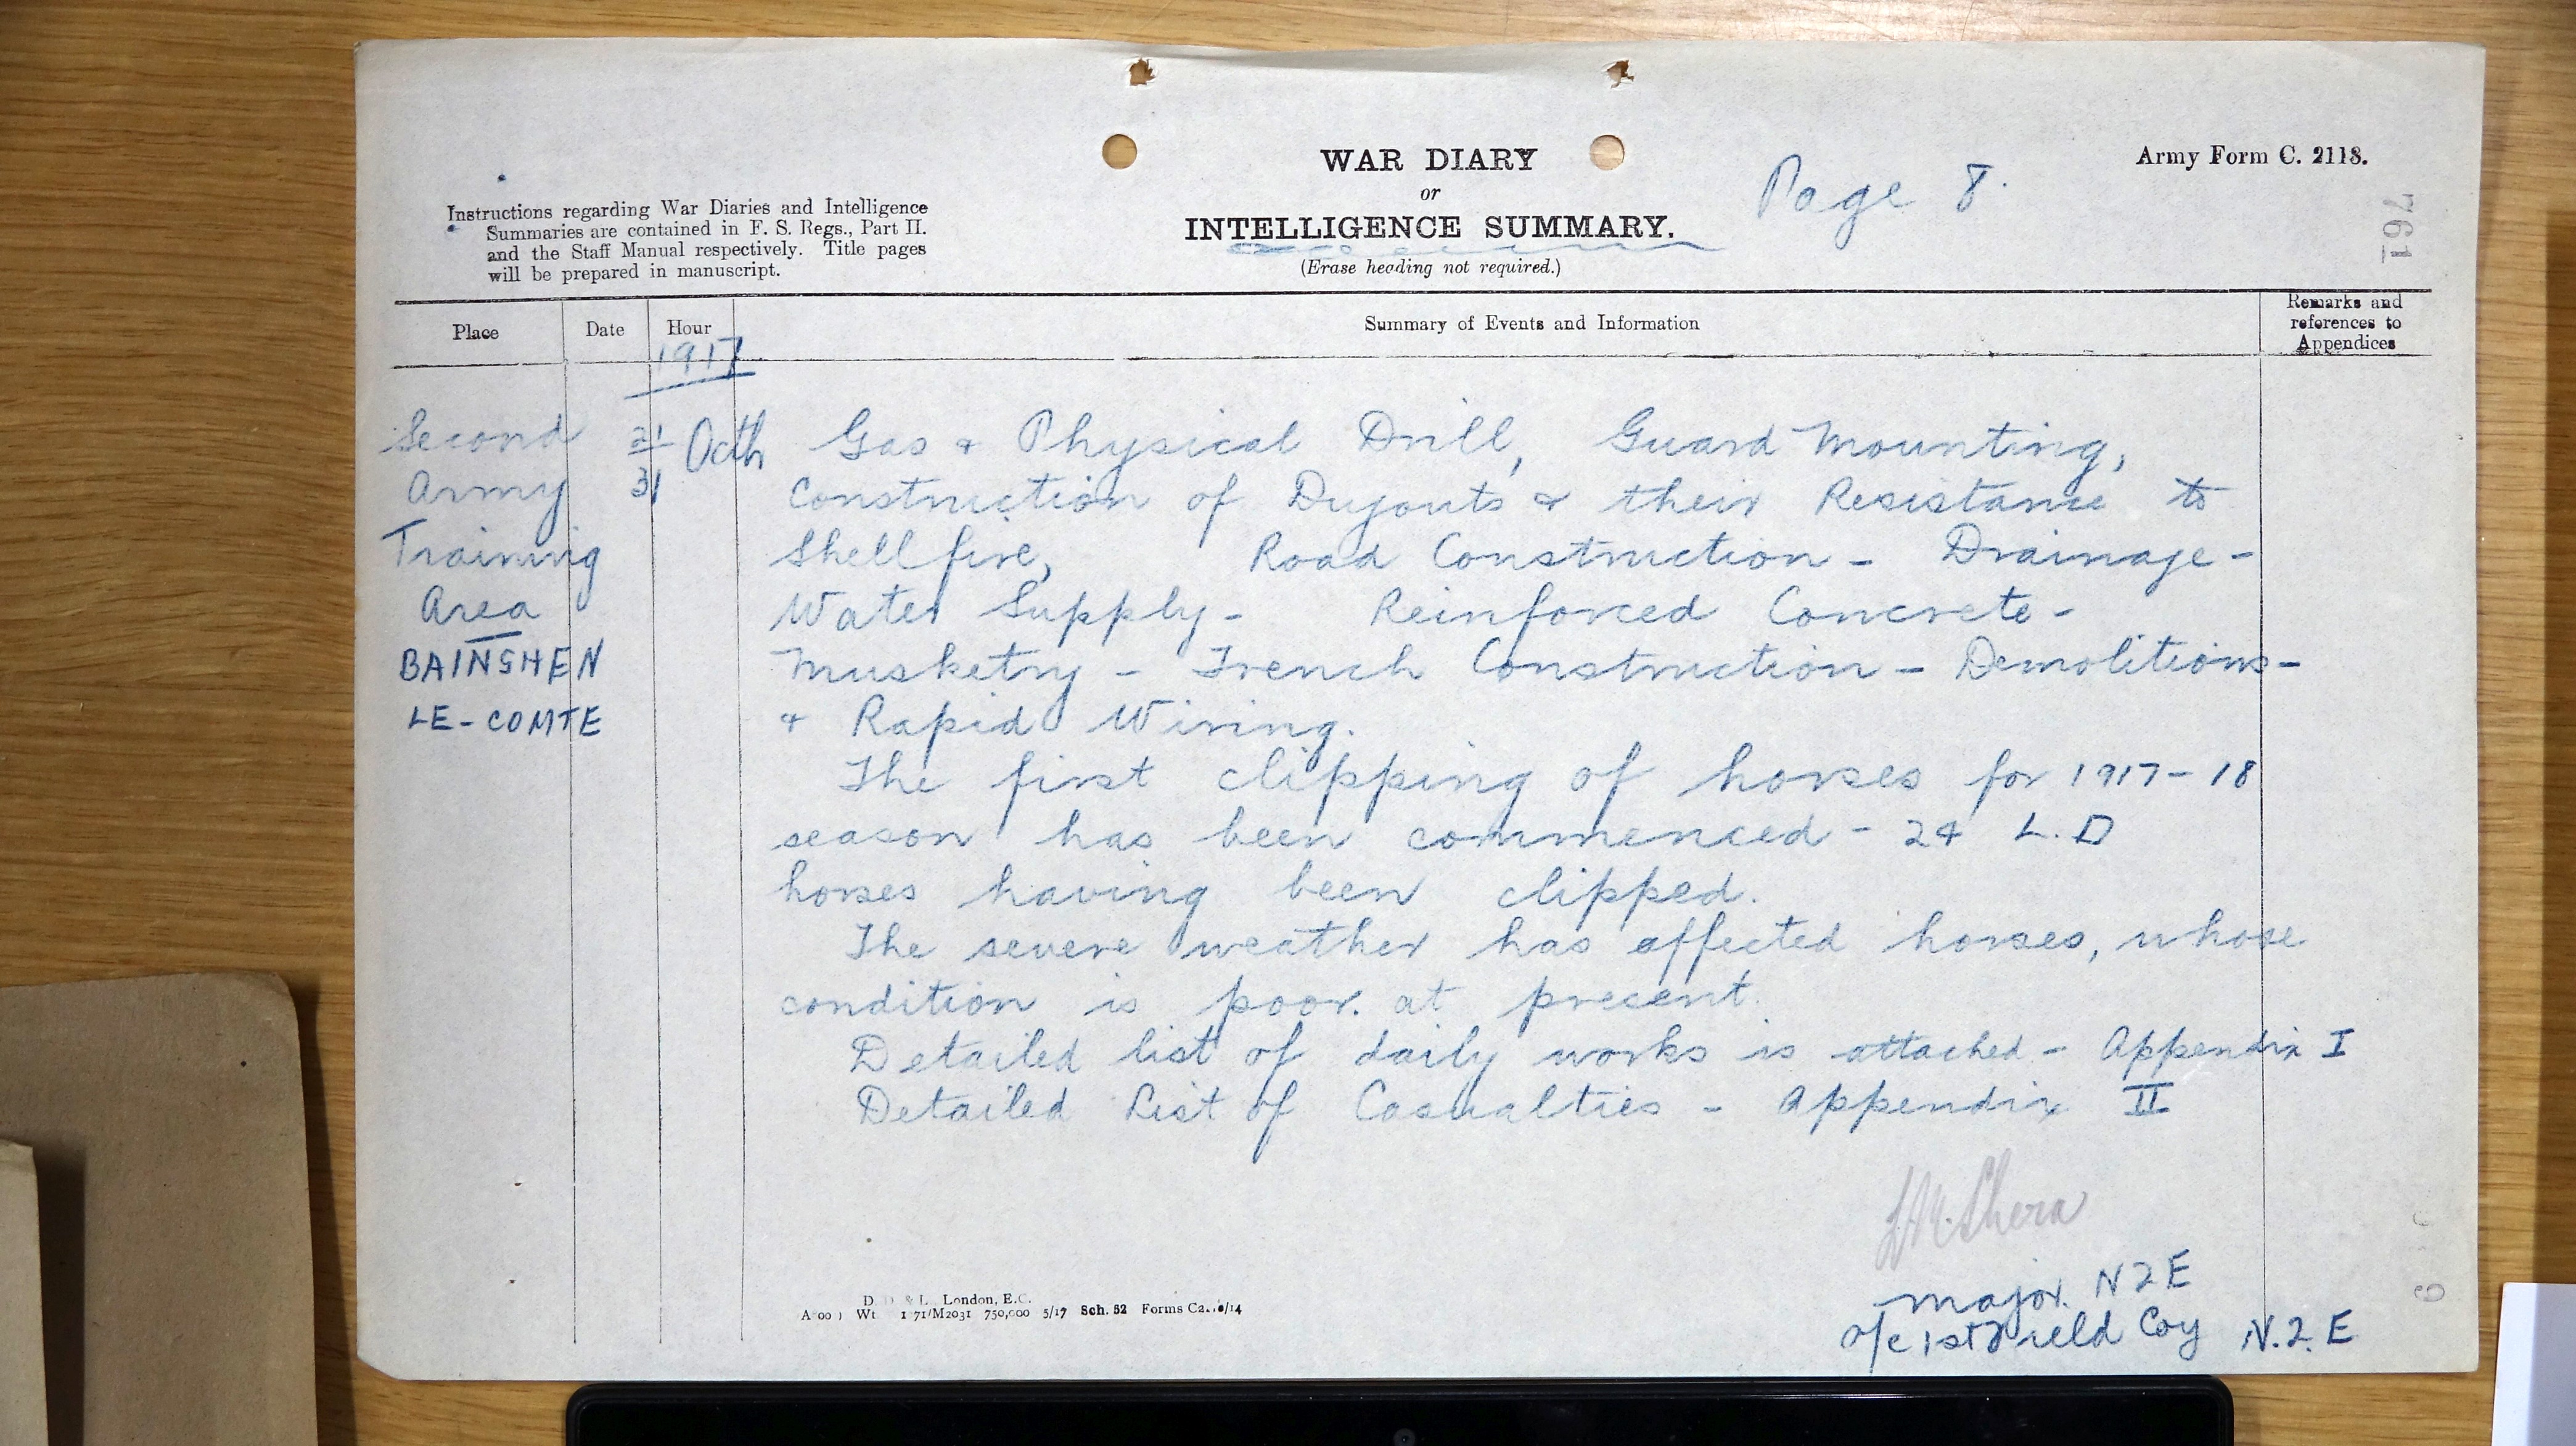 WAR DIARY
or
INTELLIGENCE SUMMARY.
(Erase heading not required.)
Page 8.
Army Form C. 2118.
761
Instructions regarding War Diaries and Intelligence
Summaries are contained in F. S. Regs., Part II.
and the Staff Manual respectively. Title pages
will be prepared in manuscript.
Place
Date
Hour
Summary of Events and Information
Remarks and
references to
Appendices
1917
Second
Army
Training
Area
BAINGHEN
LE-COMTE
21
31
Octb
Gas & Physical Drill, Guard Mounting,
Construction of Dugouts & their Resistance to
Shell fire, Road Construction - Drainage -
Water Supply - Reinforced Concrete -
Musketry - Trench Construction - Demolitions -
& Rapid Wiring.
The first clipping of horses for 1917-18
season has been commenced - 24 L.D
horses having been clipped.
The severe weather has affected horses, whose
condition is poor. at precent.
Detailed list of daily works is attached - Appendix I
Detailed List of Casualties - Appendix II
Shera
Major. NZE
o/c 1st Field Coy N.Z.E
D. D & L. London, E.C.
Wt 1 71/M2031 750,000 5/17 Sch. 52 Forms